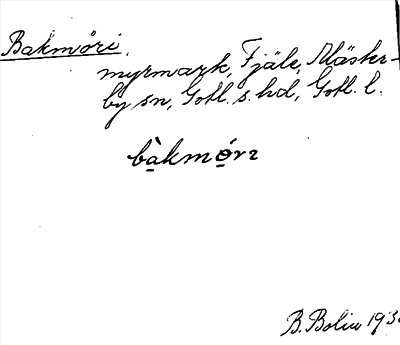 Bakmöri.
myrmark, Fjäle, Mäster-
by sn, Gotl. s. hd, Gotl. l.
bàkmóri
B. Bolin 193